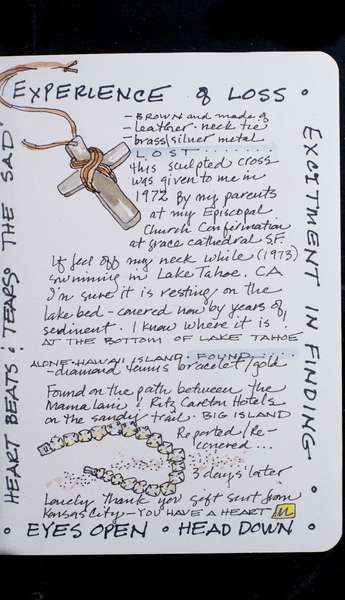 EXPERIENCE of LOSS •
- BROWN and made of
- leather neck tie
- brass/silver metal
LOST
this sculpted cross
was given to me in
1972 By my parents
at my Episcopal
Church Confirmation
at grace cathedral S.F.
It feel off my neck while (1973)
swimming in Lake Tahoe, CA
I'm sure it is resting on the
lake bed - covered now by years of
sediment. I know where it is.
AT THE BOTTOM OF LAKE TAHOE
ALONE-HAWAII ISLAND. FOUND
- diamond tennis bracelet/gold
Found on the path between the
Mama lani & Ritz Carlton Hotels
on the sandy trail. BIG ISLAND
Reported/Re-
covered...
3 days later
Lovely thank you gift sent from
Kansas City - YOU HAVE A HEART
• EYES OPEN • HEAD DOWN •
HEART BEATS : TEARS THE SAD
EXCITMENT IN FINDING